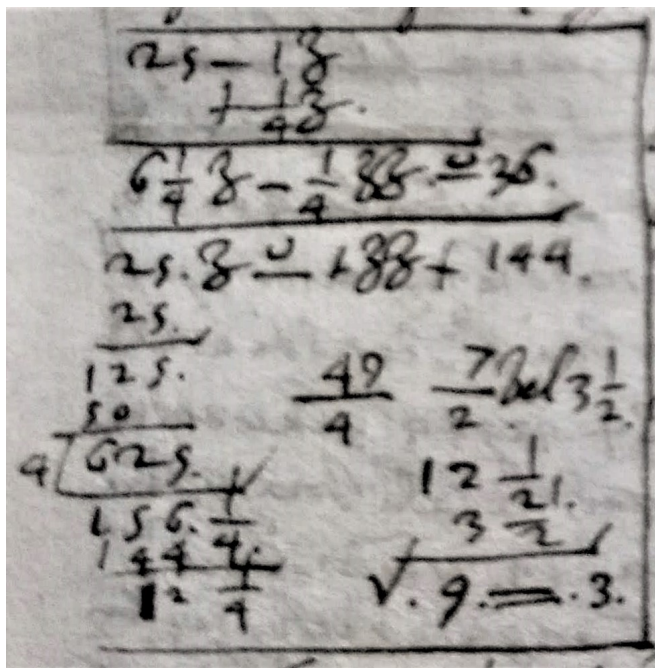 25 – 1 ȝ
+ 1/4 ȝ.
6 1/4 ȝ – 1/4 ȝȝ. = 36.
25. ȝ = 1 ȝȝ + 144.
25.
125.
50
4 625.
156. 1/4
144
12 1/4
49/4 7/2 vel 3 1/2.
12 1/2.
3 1/2
√. 9. = . 3.